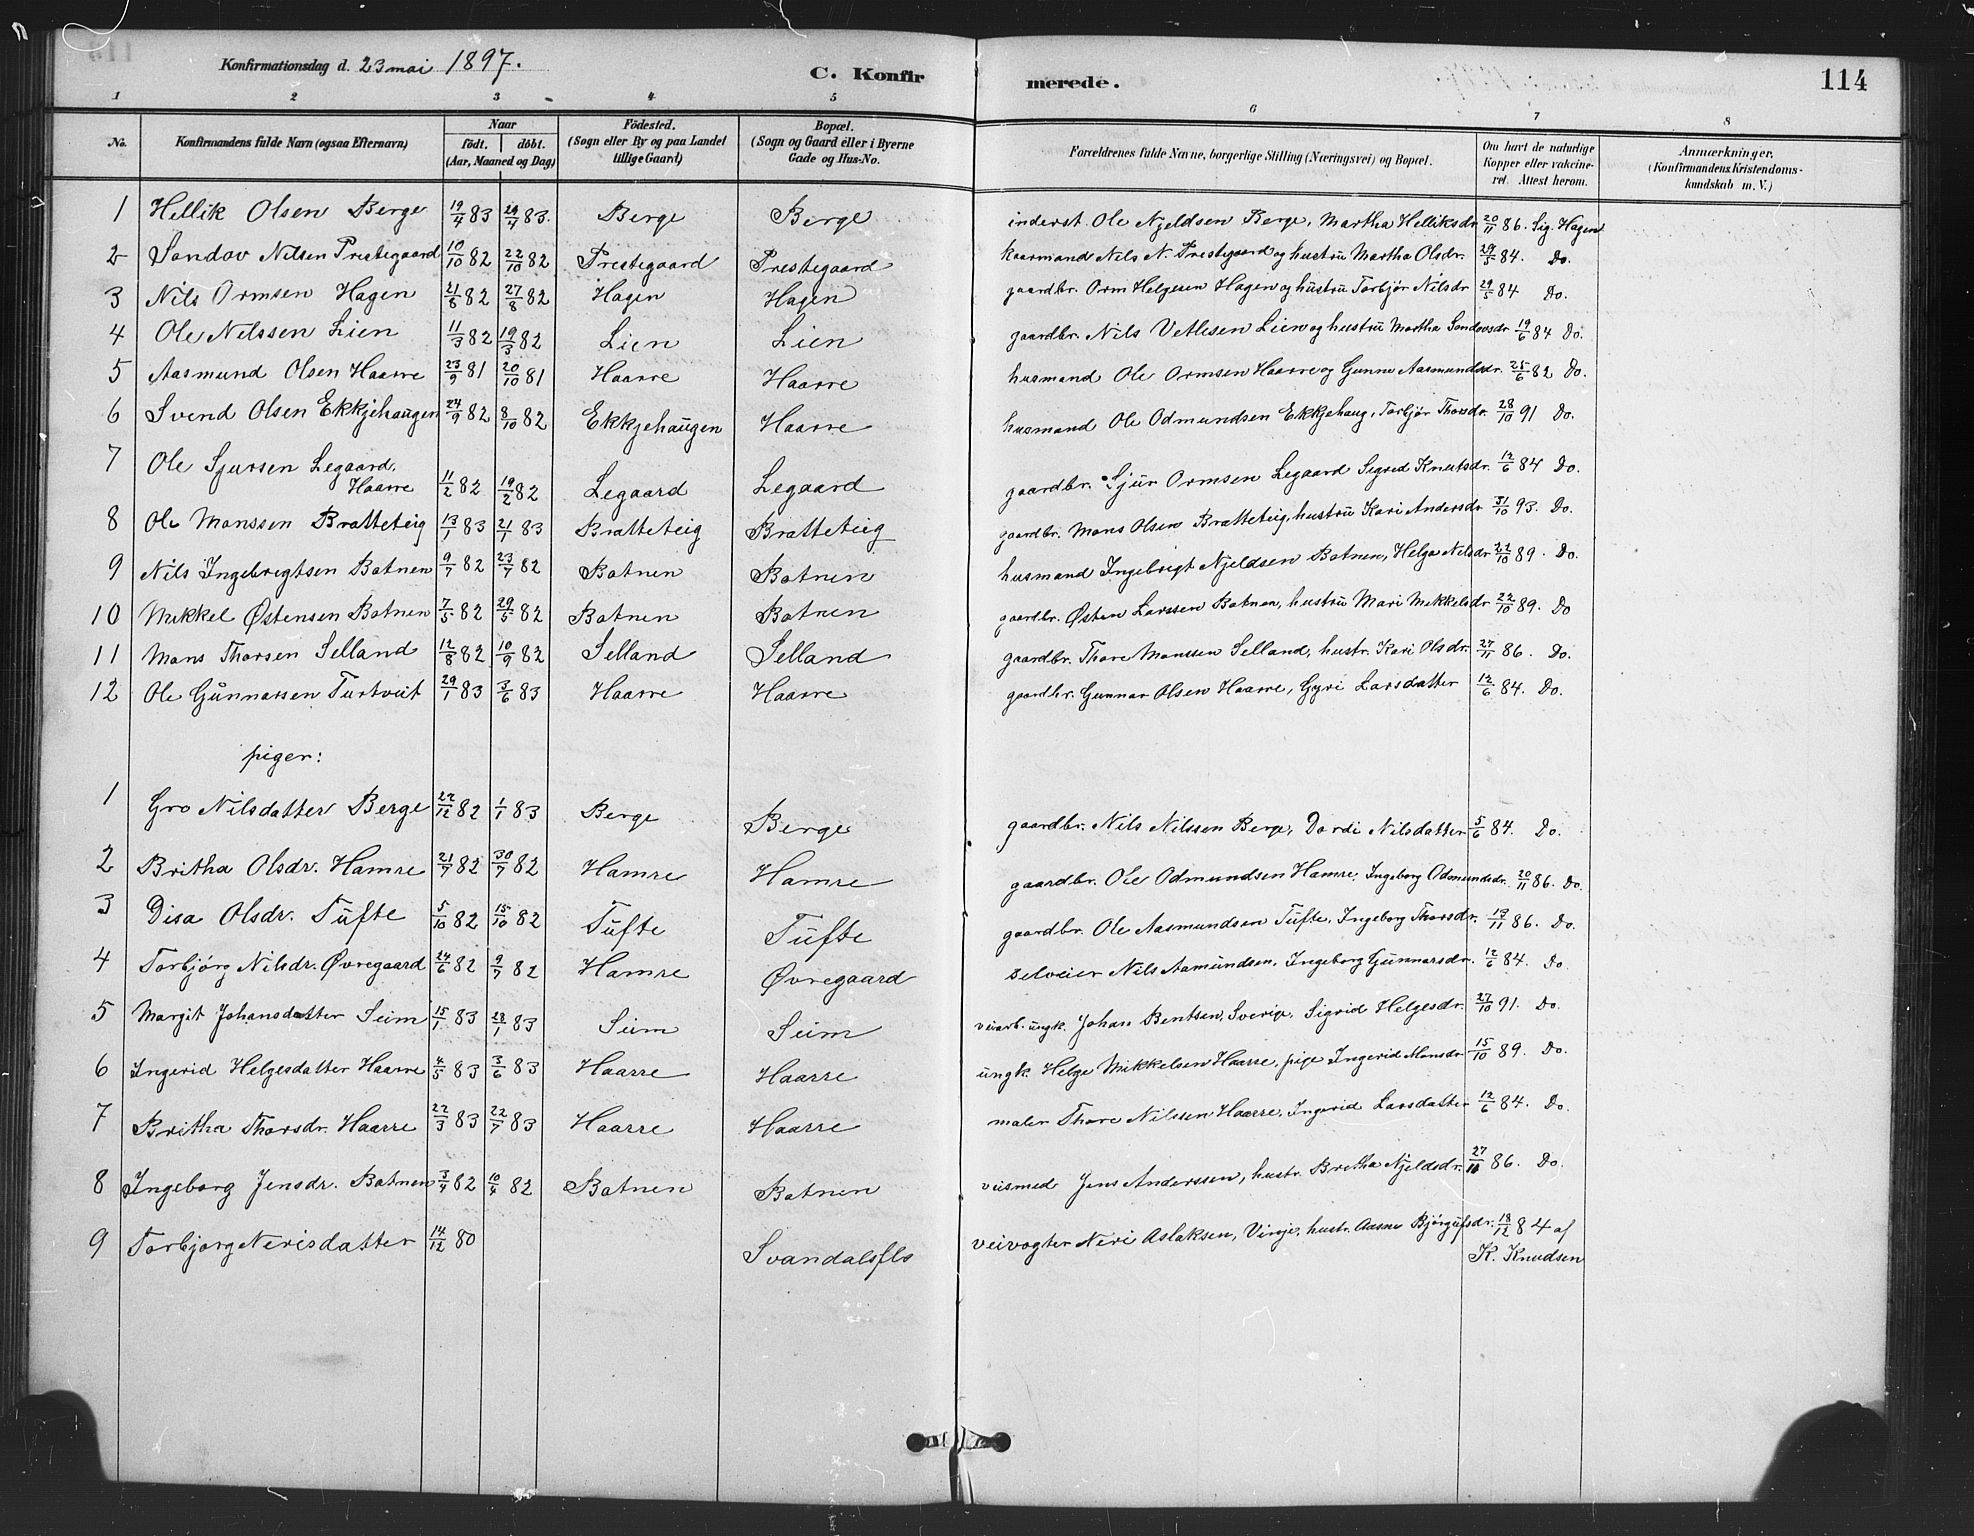 Konfirmationsdag d. 23 mai 1897.
C. Konfirmerede.
114
1 2 3 4 5 6 7 8
No. Konfirmandens fulde Navn (ogsaa Efternavn) Naar født. døbt. (Aar, Maaned og Dag) Fødested. (Sogn eller By og paa Landet tillige Gaard) Bopæl. (Sogn og Gaard eller i Byerne Gade og Hus-No. Forældrenes fulde Navne, borgerlige Stilling (Næringsvei) og Bopæl. Om havt de naturlige Kopper eller vakcineret. Attest herom. Anmærkninger. (Konfirmandens Kristendomskundskab m. V.)
1 Hellik Olsen Berge 19/4 83 29/4 83. Berge Berge inderst Ole Njeldsen Berge, Martha Helliksdr 20/11 86. Sig. Hagen
2 Sondov Nilsen Prestegaard 10/10 82 22/10 82 Prestegaard Prestegaard kaarmand Nils N. Prestegaard og hustru Martha Olsdr. 29/5 84. Do.
3 Nils Ormsen Hagen 21/8 82 27/8 82 Hagen Hagen gaardbr. Orm Helgesen Hagen og hustru Torbjør Nilsdr 29/5 84 Do.
4 Ole Nilssen Lien 11/3 82 19/3 82 Lien Lien gaardbr. Nils Vetlesen Lien og hustru Martha Sondovsdr 19/6 84 Do.
5 Aasmund Olsen Haarre 23/9 81 20/10 81 Haarre Haarre husmand Ole Ormsen Haarre og Gunne Aasmundsdr. 25/6 82 Do.
6 Svend Olsen Ekkjehaugen 24/9 82 8/10 82 Ekkjehaugen Haarre husmand Ole Odmundsen Ekkjehaug, Torbjør Thorsdr. 28/10 91 Do.
7 Ole Sjursen Legaard, Haarre 11/2 82 19/2 82 Legaard Legaard gaardbr. Sjur Ormsen Legaard Sigrid Knutsdr. 12/6 84 Do.
8 Ole Monssen Bratteteig 13/1 83 21/1 83 Bratteteig Bratteteig gaardbr. Mons Olsen Bratteteig, hustru Kari Andersdr 31/10 93. Do.
9 Nils Ingebrigtsen Botnen 9/7 82 23/7 82 Botnen Botnen husmand Ingebrigt Njeldsen Botnen, Helga Nilsdr 22/10 89. Do.
10 Mikkel Østensen Botnen 7/5 82 29/5 82 Botnen Botnen gaardbr. Østen Larssen Botnen, hustru Mari Mikkelsdr 22/10 89. Do
11 Mons Thorsen Selland 12/8 82 10/9 82 Selland Selland gaardbr. Thore Monssen Selland, hustr. Kari Olsdr. 27/11 86. Do.
12 Ole Gunnarsen Turtveit 29/1 83 3/6 83 Haarre Haarre gaardbr. Gunnar Olsen Haarre, Gyri Larsdatter 12/6 84. Do.
piger:
1 Gro Nilsdatter Berge 22/12 82 1/1 83 Berge Berge gaardbr. Nils Nilssen Berge, Dordi Nilsdatter 5/6 84. Do.
2 Britha Olsdr. Hamre 21/7 82 30/7 82 Hamre Hamre gaardbr. Ole Odmundsen Hamre, Ingeborg Odmundsdr. 20/11 86. Do.
3 Disa Olsdr. Tufte 5/10 82 15/10 82 Tufte Tufte gaardbr. Ole Aasmundsen Tufte, Ingeborg Thorsdr. 13/11 86. Do.
4 Torbjørg Nilsdr. Øvregaard 24/6 82 9/7 82 Hamre Øvregaard selveier Nils Aamundsen, Ingeborg Gunnarsdr. 12/6 84. Do
5 Margit Johansdatter Seim 15/1 83 28/1 83 Seim Seim veiarb. ungk. Johan Bentsen, Sverige, Sigrid Helgesdr. 27/10 91. Do.
6 Ingerid Helgesdatter Haarre 4/5 83 3/6 83 Haarre Haarre ungk. Helge Mikkelsen Haarre, pige Ingerid Monsdr 15/10 89. Do.
7 Britha Thorsdr. Haarre 22/3 83 22/7 83 Haarre Haarre maler Thore Nilssen Haarre, Ingerid Larsdatter 12/6 84. Do.
8 Ingeborg Jensdr. Botnen 3/4 82 10/4 82 Botnen Botnen veismed Jens Anderssen, hustr. Britha Njeldsdr. 27/11 86. Do.
9 Torbjorg Nerisdatter 14/12 80 Svandalsfls veivogter Neri Aslaksen, Vinje, hustr. Aasne Bjørgufsdr. 18/12 84 af
K. Knudsen